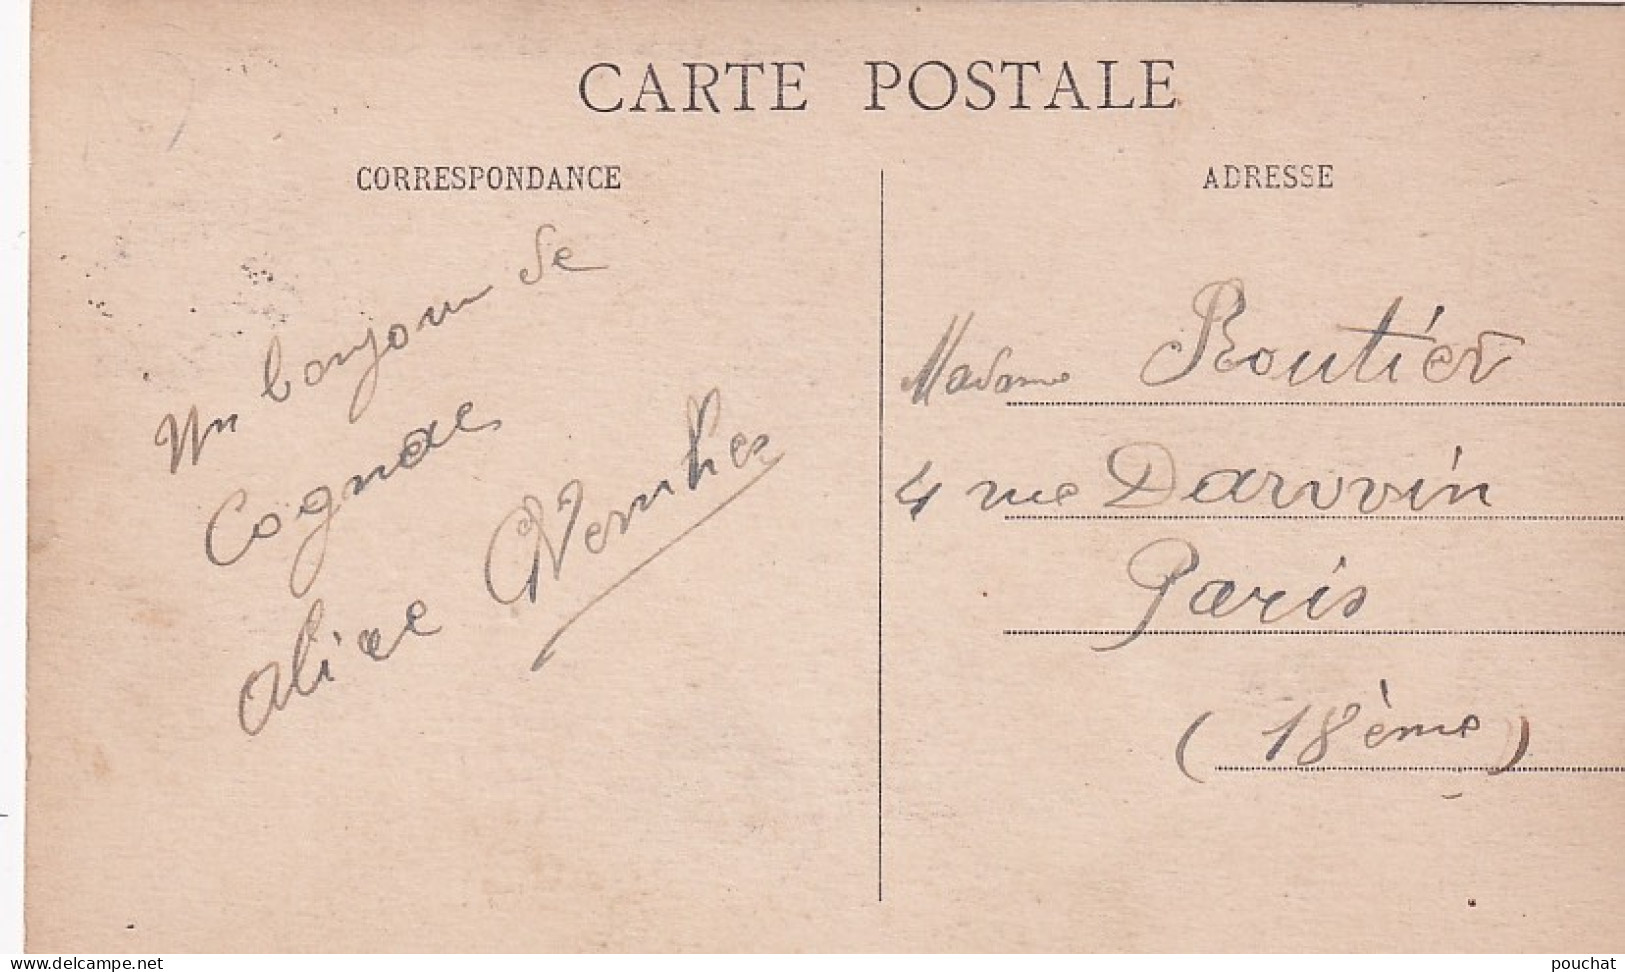 CARTE POSTALE
CORRESPONDANCE
Un bonjour de
Cognac
Alice Vernhes
ADRESSE
Madame Routier
4 rue Darwin
Paris
(18ème)
www.delcampe.net
pouchat